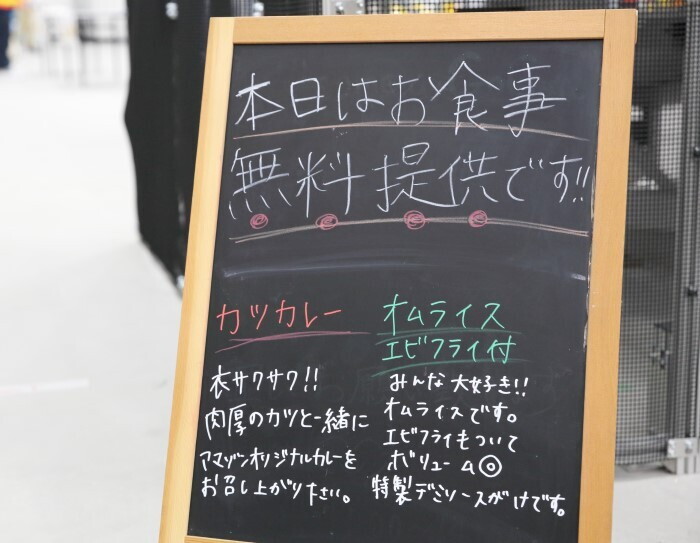 本日はお食事
無料提供です!!
カツカレー
衣サクサク!!
肉厚のカツと一緒に
アマゾンオリジナルカレーを
お召し上がり下さい。
オムライス
エビフライ付
みんな大好き!!
オムライスです。
エビフライもついて
ボリューム◎
特製デミソースがけです。